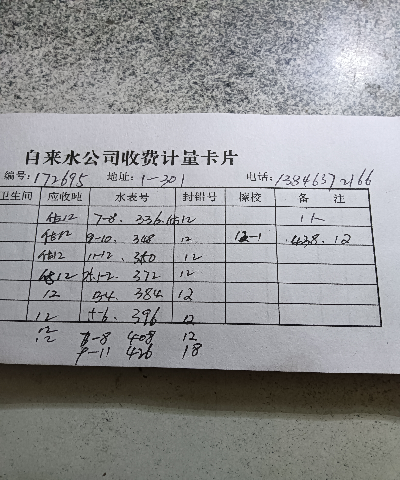 自来水公司收费计量卡片
编号: 172695 地址: 1-301 电话: 13846372166
卫生间 应收吨 水表号 封铅号 检校 备 注
估12 7-8. 336 估12 1人
估12 9-10. 348 12 12-1 438. 12
估12 11-12. 360 12
估12 1-2. 372 12
12 3-4. 384 12
12 5-6. 396 12
12
12 7-8 408 12
9-11 426 18